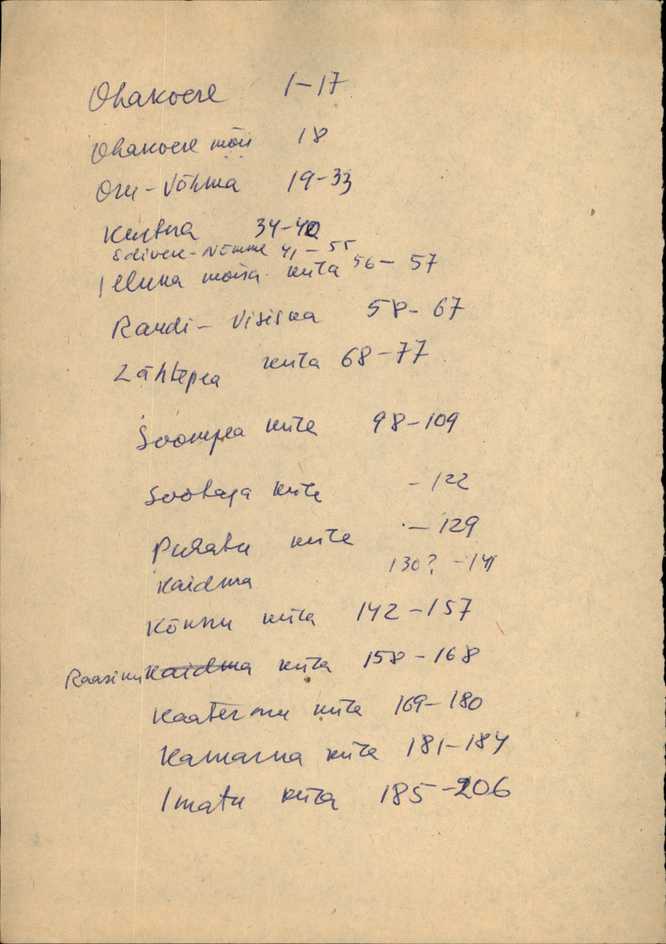 Ohakvere 1-17
Ohakvere mõis 18
Oru-Võhma 19-33
Kuntna 34-40
Sõlvere-Nõmme 41-55
Illuka mõisa küla 56-57
Raudi- 58-67
Lähtepea küla 68-77
Soompea küla 98-109
Sootaga küla -122
Puhatu küla -129
Kaidma 130? -141
Kõnnu küla 142-157
Raasiku Kaidma küla 158-168
Kaatermu küla 169-180
Kamarna küla 181-184
Imatu küla 185-206